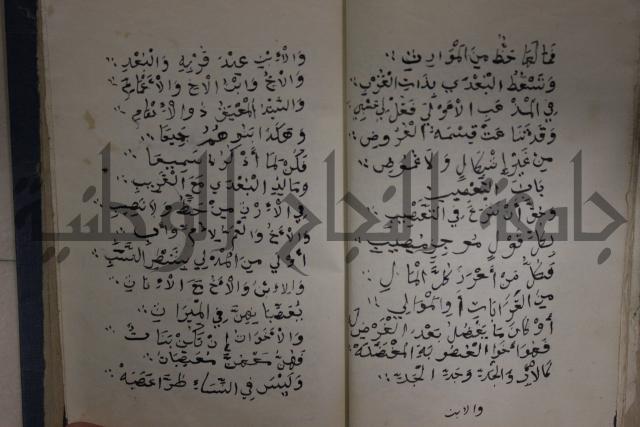 فَمَا لَهَا حَظٌّ مِنَ الْمَوَارِيثِ
وَتَسْقُطُ الْبُعْدَى بِذَاتِ الْقُرْبِ
فِي الْمَذْهَبِ الْأَوْلَى فَقُلْ لِي حَسْبِي
وَقَدْ تَنَاهَتْ قِسْمَةُ الْفُرُوضِ
مِنْ غَيْرِ إِشْكَالٍ وَلَا غُمُوضِ
بَابُ التَّعْصِيبِ
وَحَقَّ أَنْ نَشْرَعَ فِي التَّعْصِيبِ
بِكُلِّ قَوْلٍ مُوجَزٍ مُصِيبِ
فَكُلُّ مَنْ أَحْرَزَ كُلَّ الْمَالِ
مِنَ الْقَرَابَاتِ أَوِ الْمَوَالِي
أَوْ كَانَ مَا يَفْضُلُ بَعْدَ الْفَرْضِ لَهُ
فَهْوَ أَخُو الْعُصُوبَةِ الْمُفَضَّلَهْ
كَالْأَبِ وَالْجَدِّ وَجَدِّ الْجَدِّ
والابن
وَالْاِبْنِ عِنْدَ قُرْبِهِ وَالْبُعْدِ
وَالْأَخِ وَابْنِ الْأَخِ وَالْأَعْمَامِ
وَالسَّيِّدِ الْمُعْتِقِ ذُو الْإِنْعَامِ
وَهَكَذَا بَنُوهُمْ جَمِيعًا
فَكُنْ لِمَا أَذْكُرُهُ سَمِيعًا
وَمَا لِذِي الْبُعْدَى مَعَ الْقَرِيبِ
فِي الْإِرْثِ مِنْ حَظٍّ وَلَا نَصِيبِ
وَالْأَخُ وَالْعَمُّ لِأُمٍّ وَأَبِ
أَوْلَى مِنَ الْمُدْلِي بِشَطْرِ النَّسَبِ
وَالْاِبْنُ وَالْأَخُ مَعَ الْإِنَاثِ
يُعَصِّبَانِهِنَّ فِي الْمِيرَاثِ
وَالْأَخَوَاتُ إِنْ تَكُنْ بَنَاتُ
فَهُنَّ مَعَهُنَّ مُعَصَّبَاتُ
وَلَيْسَ فِي النِّسَاءِ طُرًّا عَصَبَهْ
جامعة النجاح الوطنية